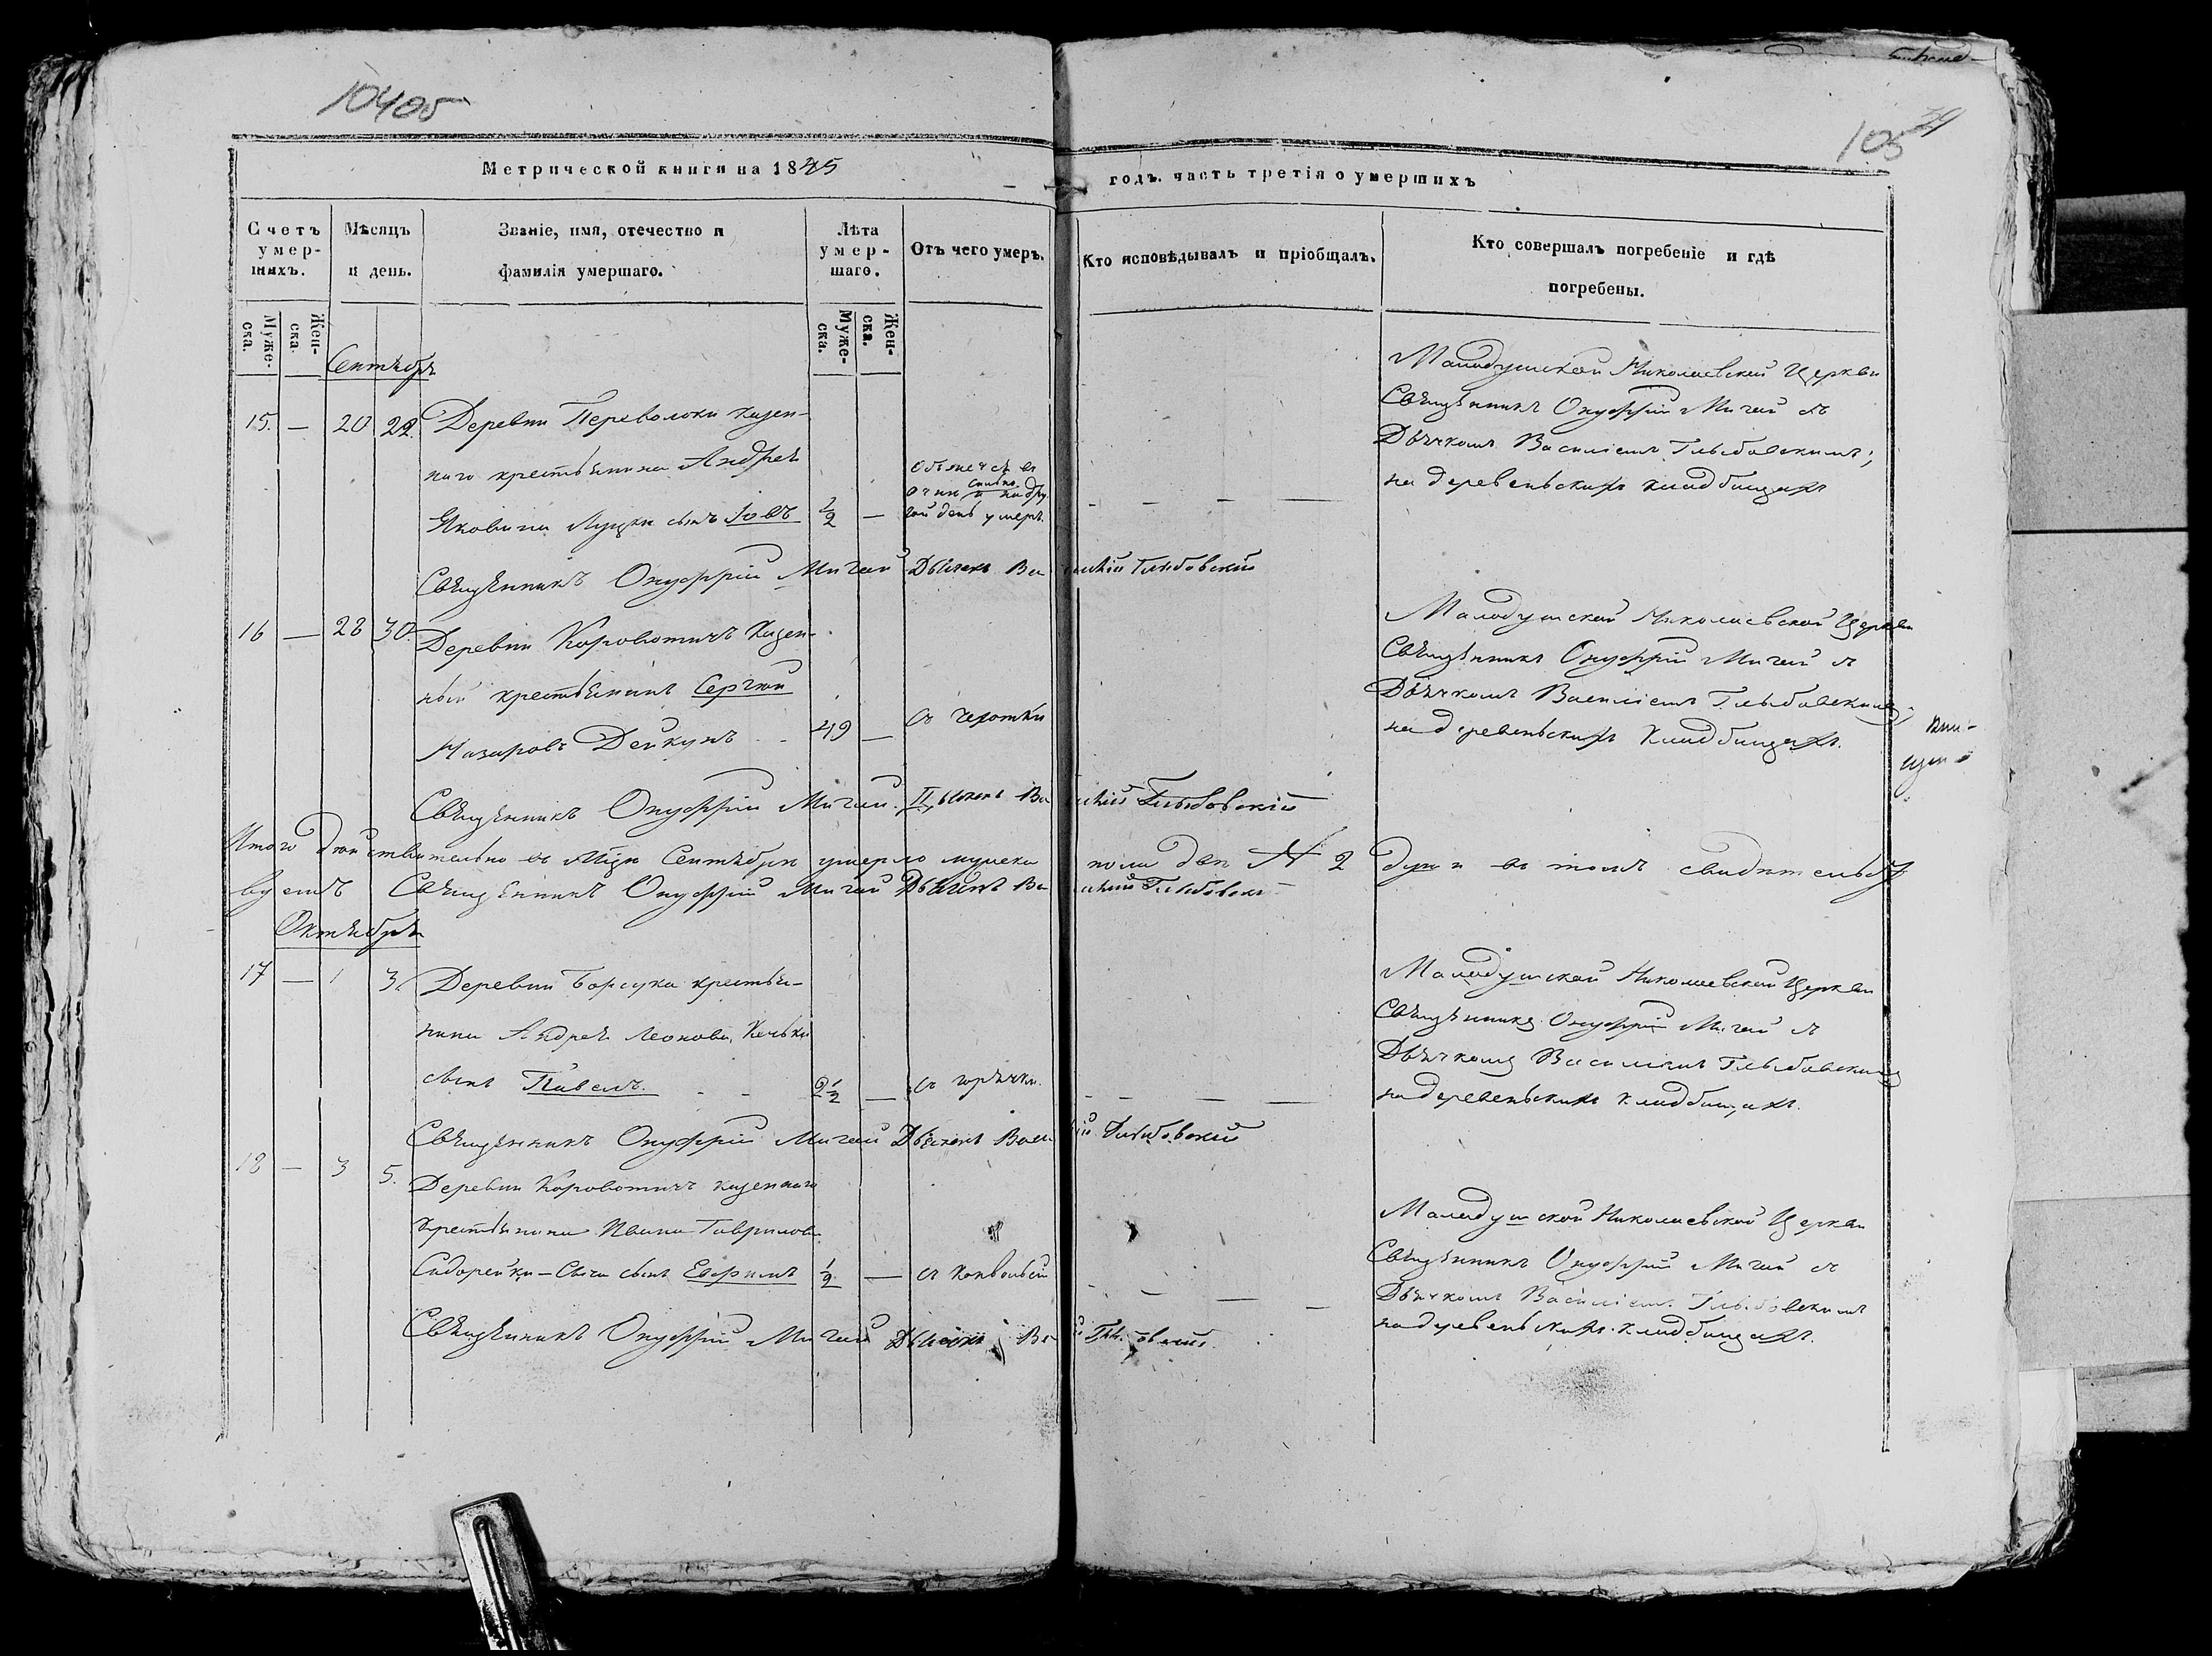 10405
105
79
Метрической книги на 1845 годъ. часть третія о умершихъ
Счетъ умер-шихъ.
Мѣсяцъ и день.
Званіе, имя, отечество и фамилія умершаго.
Лѣта умер-шаго.
Отъ чего умеръ.
Кто исповѣдывалъ и пріобщалъ.
Кто совершалъ погребеніе и гдѣ погребены.
Муже-ска.
Жен-ска.
Муже-ска.
Жен-ска.
Сентябрь
15. — 20 22. Деревни Переволоки казен-
наго крестьянина Андрея
Яковина Луцки сынъ Іовъ 1/2 —
сильно
и на дру
гой день умеръ.
Малодушской Николаевской Церкви
Священникъ Онуфрій Мигай съ
Дьячкомъ Василіемъ Глыбовскимъ;
на деревеньскихъ кладбищахъ
Священникъ Онуфрій Мигай Дьячекъ Василій Глыбовскій
16 — 28 30. Деревни Короватичъ Казен-
ный крестьянинъ Сергѣй
Назаровъ Дейкунъ 49 — съ чахотки
Малодушской Николаевской Церкви
Священникъ Онуфрій Мигай съ
Дьячкомъ Василіемъ Глыбовскимъ;
на деревеньскихъ Кладбищахъ.
Священникъ Онуфрій Мигай. Дьячекъ Василій Глыбовскій
Итого действительно въ Мцѣ Сентябрѣ умерло мужеска пола двѣ № 2 души въ томъ свидѣтельст
вуемъ Священникъ Онуфрій Мигай Дьячекъ Василій Глыбовскій
Октябрь
17 — 1 3. Деревни Борсука крестья-
нина Андрея Леонова
сынъ Павелъ. 2 1/2 — съ горячки.
Малодушской Николаевской Церкви
Священникъ Онуфрій Мигай съ
Дьячкомъ Василіемъ Глыбовскимъ
на деревеньскихъ кладбищахъ.
Священникъ Онуфрій Мигай Дьячекъ Василій Глыбовскій
18 — 3 5. Деревни Короватичъ казеннаго
крестьянина Ивана Гаврилова
Сидорейки – Сыча сынъ Ефримъ 1/2 — съ конвольсіи
Малодушской Николаевской Церкви
Священникъ Онуфрій Мигай съ
Дьячкомъ Василіемъ Глыбовскимъ
на деревеньскихъ кладбищахъ.
Священникъ Онуфрій Мигай Дьячекъ